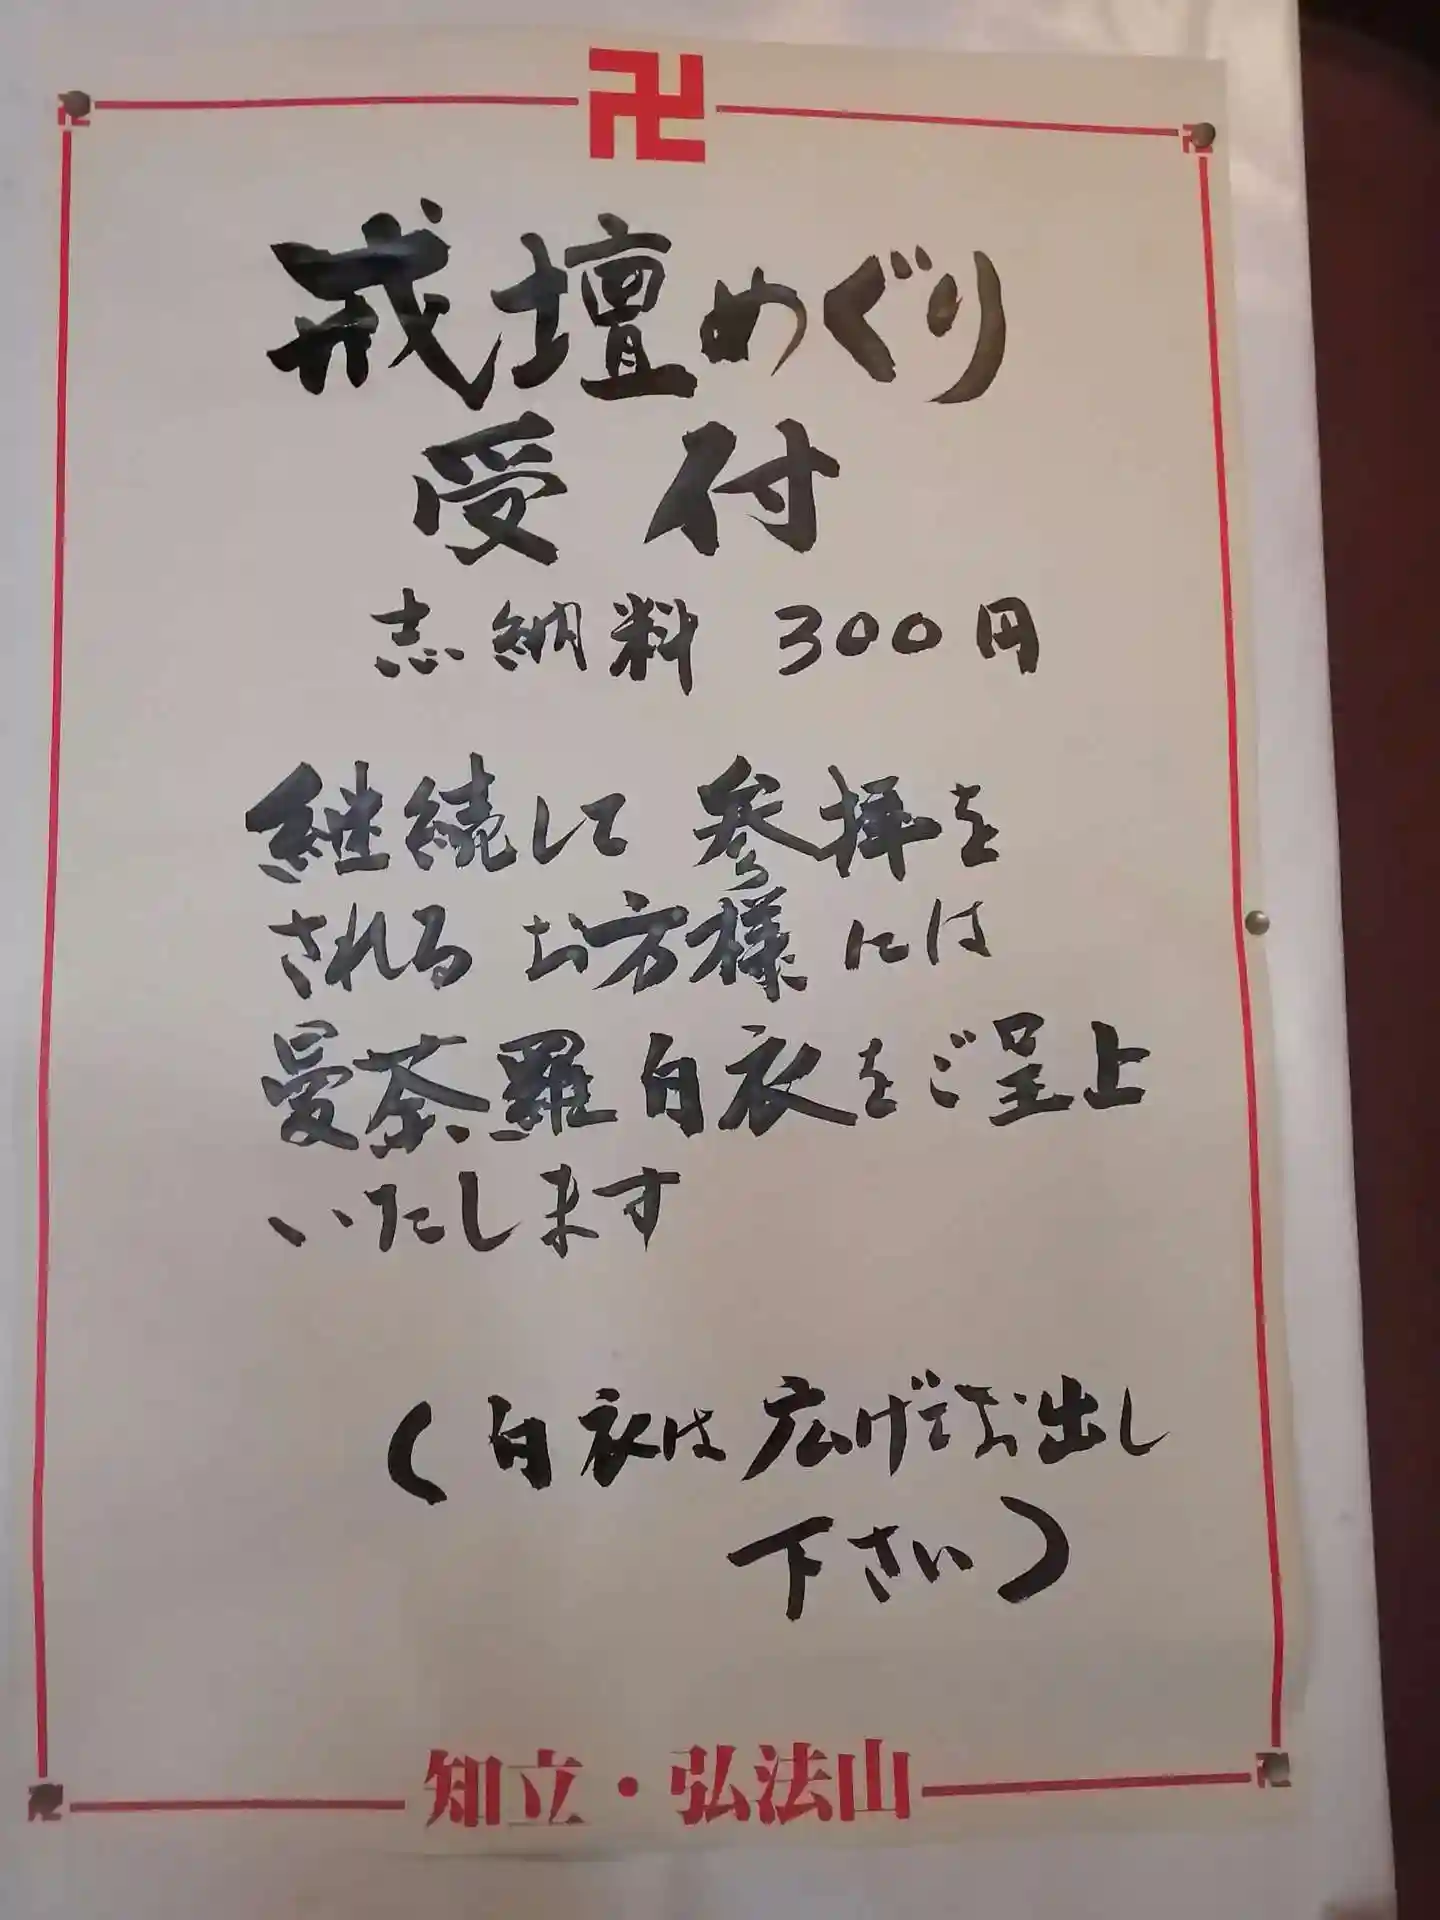 卍
戒壇めぐり
受付
志納料 300円
継続して 参拝を
される お方様には
曼荼羅白衣をご呈上
いたします
(白衣は広げてお出し
下さい)
知立・弘法山